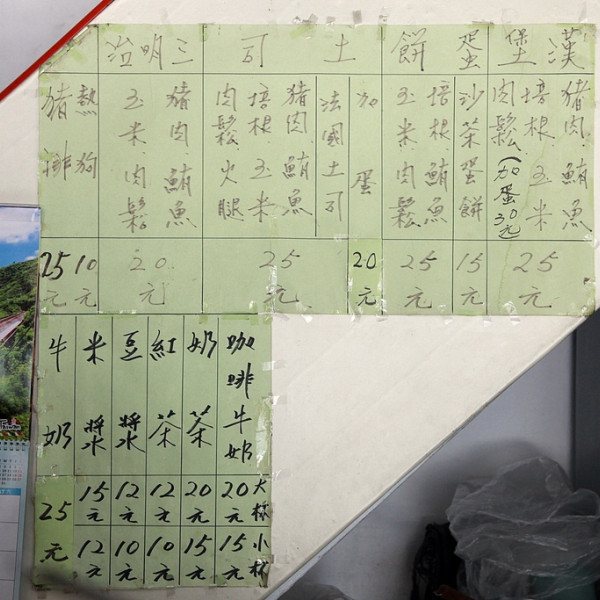 漢堡
豬肉.鮪魚
培根.玉米
肉鬆(加蛋30元)
25元
蛋餅
沙茶蛋餅
15元
培根.鮪魚
玉米.肉鬆
25元
加蛋
20元
土司
法國土司
豬肉.鮪魚
培根.玉米
肉鬆.火腿
25元
三明治
豬肉.鮪魚
玉米.肉鬆
20元
熱狗
10元
豬排
25元
咖啡牛奶
大杯
20元
小杯
15元
奶茶
20元
15元
紅茶
12元
10元
豆漿
12元
10元
米漿
15元
12元
牛奶
25元